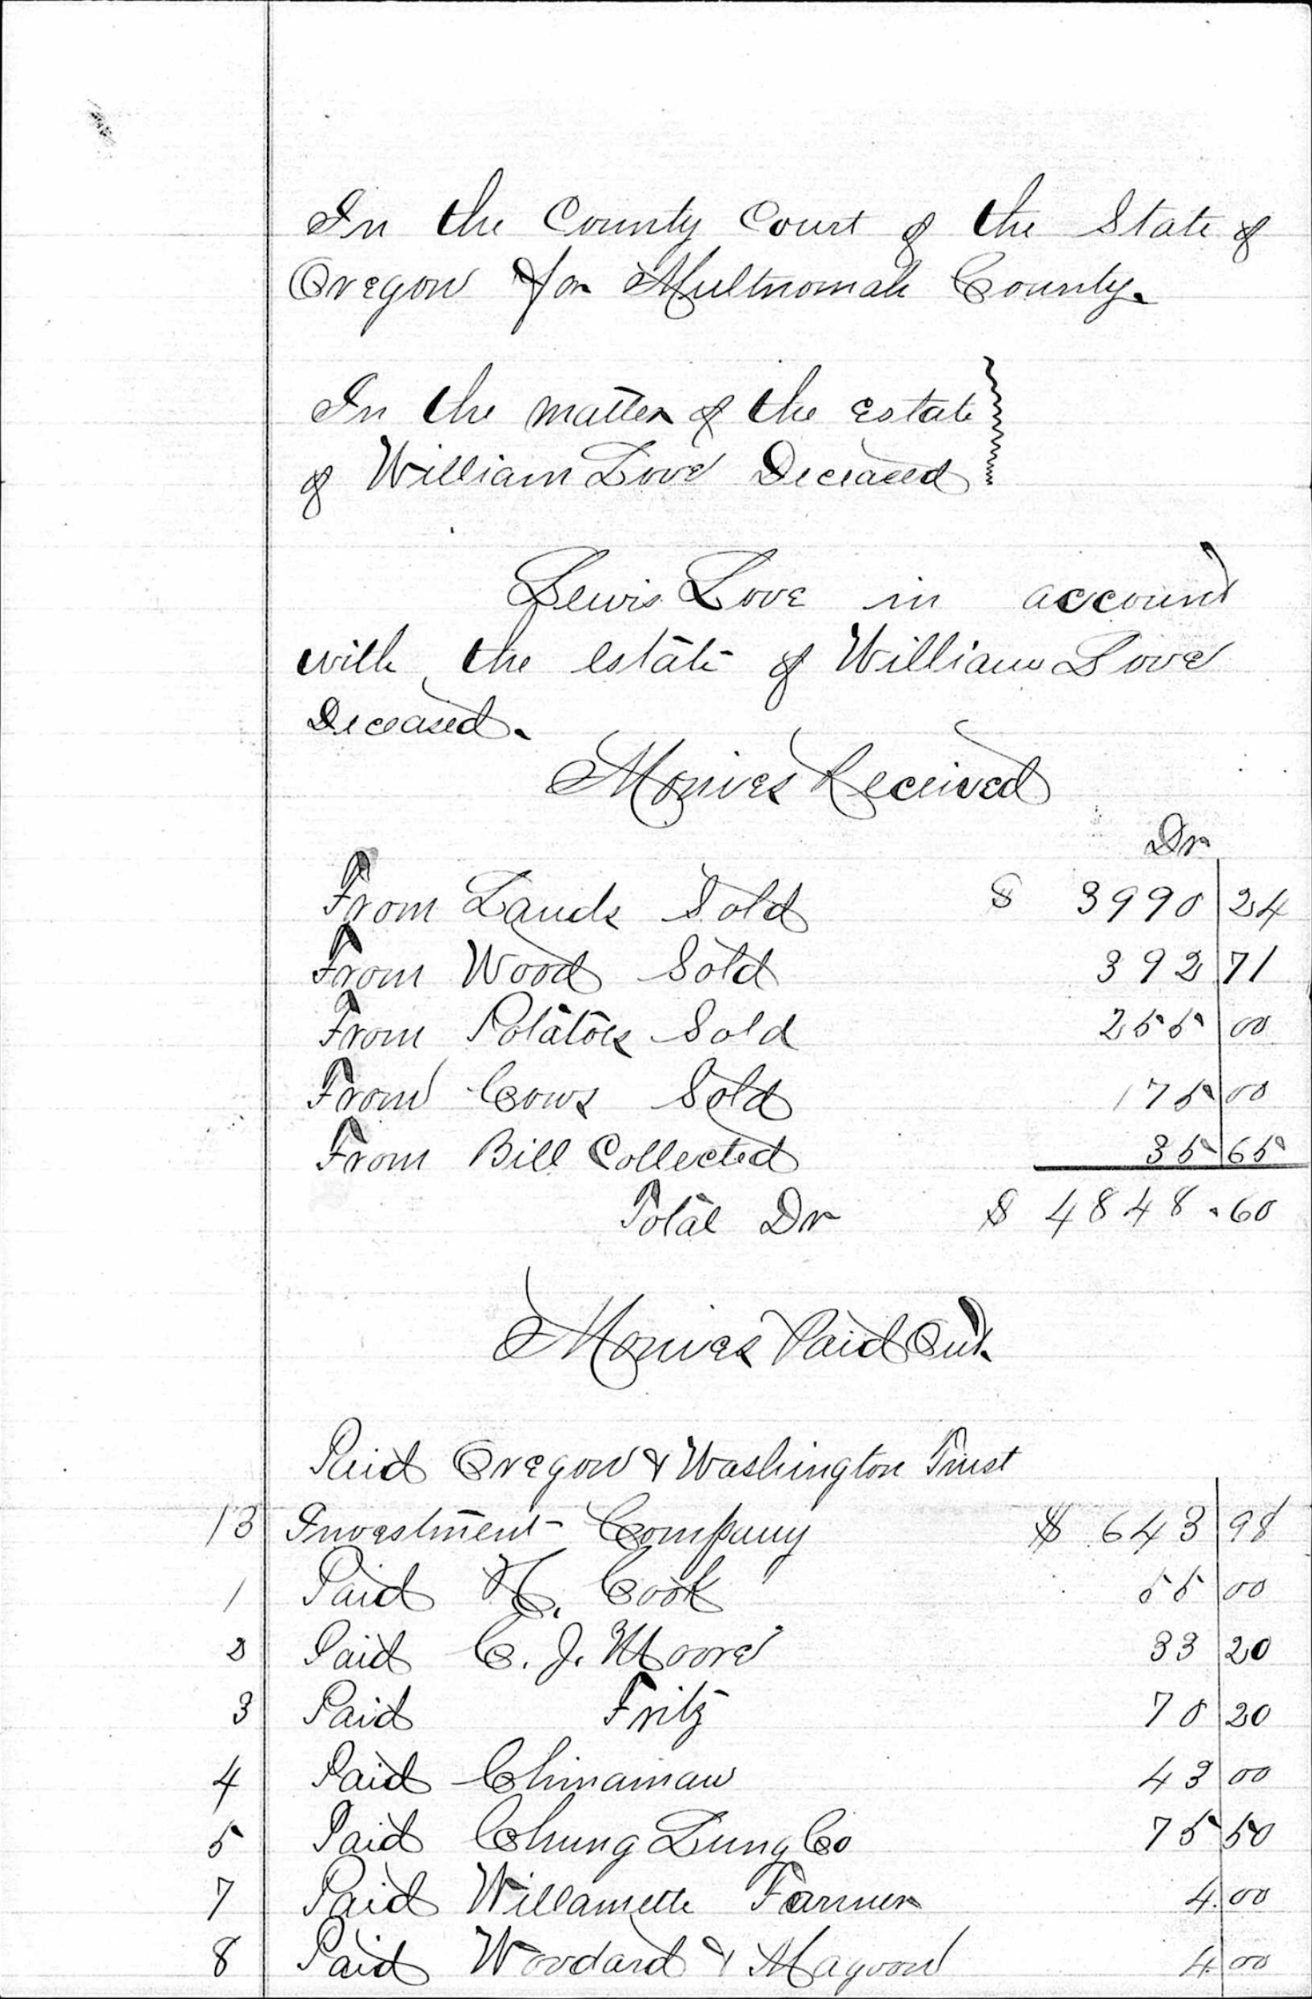 In the County Court of the State of
Oregon for Multnomah County.
In the matter of the Estate
of William Love Deceased
Lewis Love in account
with the estate of William Love
Deceased.
Monies Received
Dr
From Lands Sold $ 3990 24
From Wood Sold 392 71
From Potatoes Sold 255 00
From Cows Sold 175 00
From Bill Collected 35 65
Total Dr $ 4848.60
Monies Paid Out.
Paid Oregon & Washington Trust
13 Investment Company $ 643 98
1 Paid H. Cook 55 00
2 Paid C. J. Moore 33 20
3 Paid Fritz 70 20
4 Paid Chinaman 43 00
5 Paid Chung Lung Co 75 50
7 Paid Willamette Farmer 4.00
8 Paid Woodard & Magoon 4.00